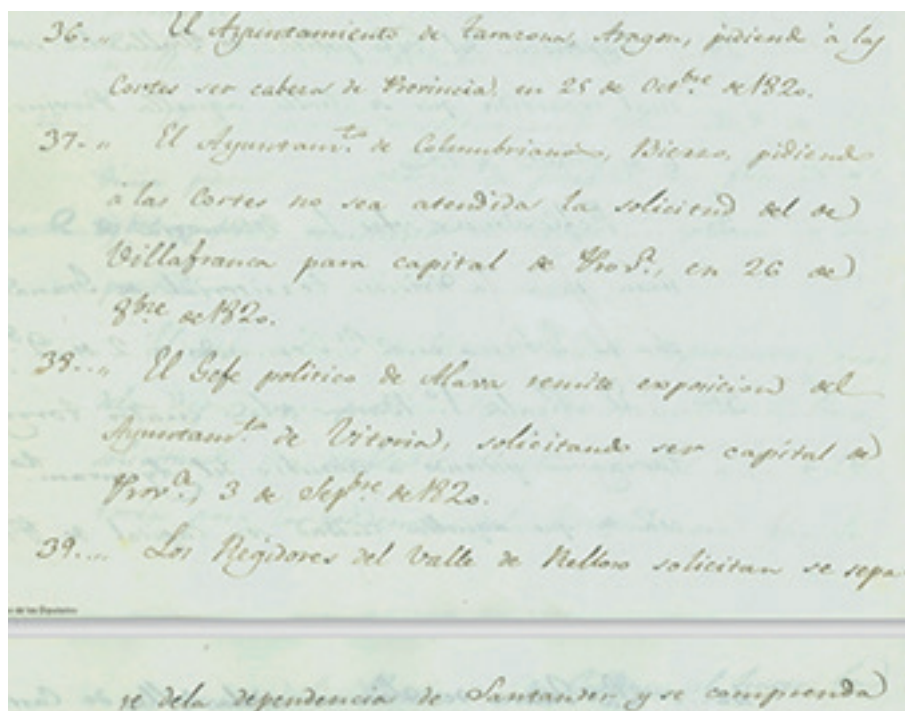 36.,, El Ayuntamiento de Tarazona, Aragon, pidiendo à las
Cortes ser cabeza de Provincia, en 25 de Oct.bre de 1820.
37.,, El Ayuntam.to de Columbrianos, Bierzo, pidiendo
à las Cortes no sea atendida la solicitud del de
Villafranca para capital de Prov.a, en 26 de
8bre de 1820.
38..,, El Gefe politico de Alava remite exposicion del
Ayuntam.to de Vitoria, solicitando ser capital de
Prov.a, 3 de Sepbre de 1820.
39.... Los Regidores del Valle de solicitan se sepa
de los Diputados
re dela dependencia de Santander y se comprenda